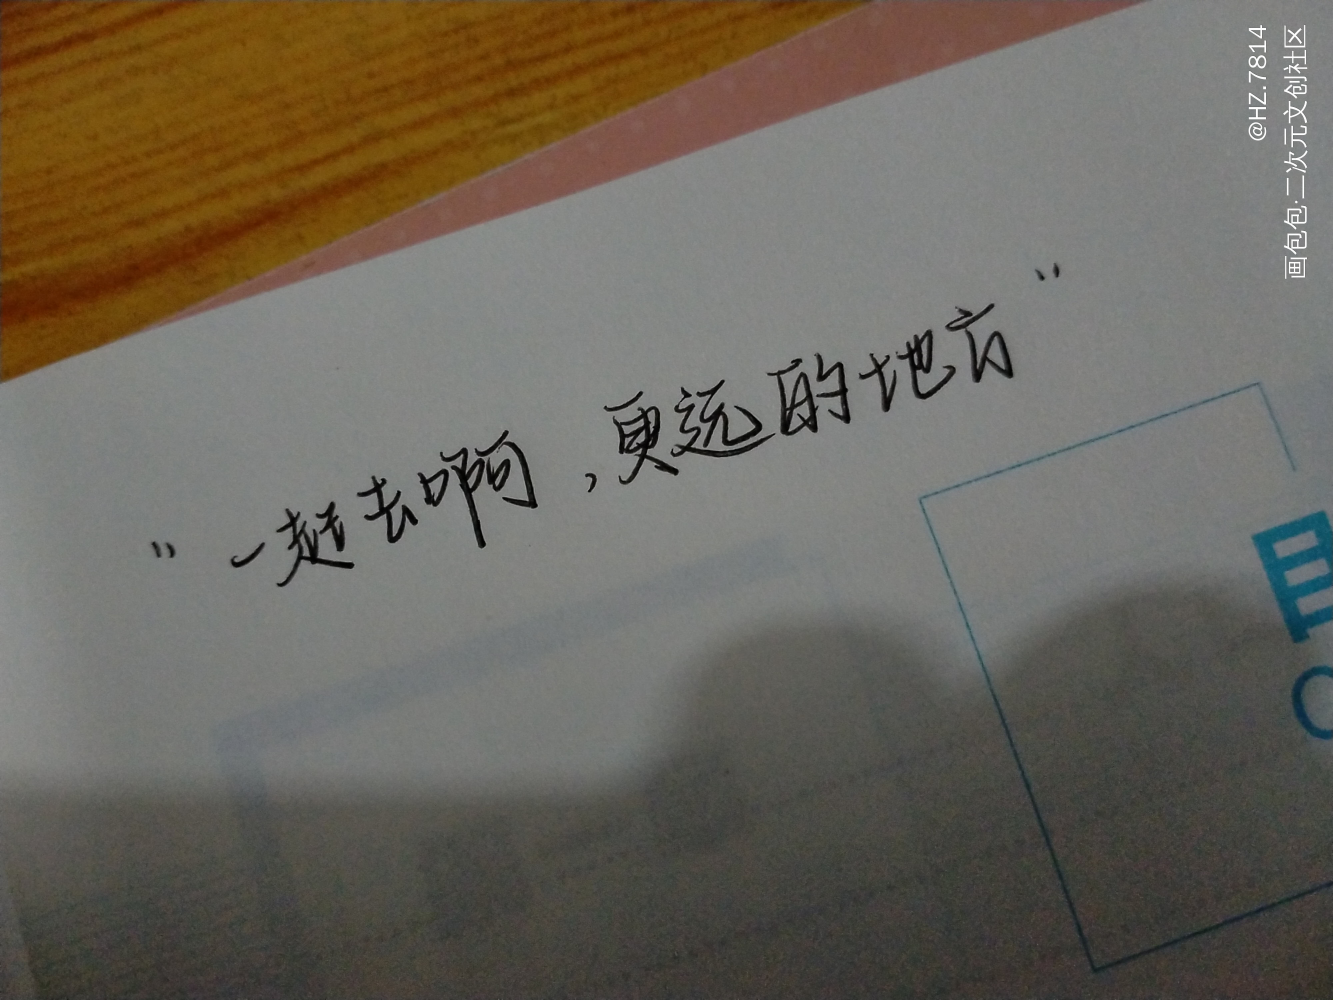 “一起去啊，更远的地方”
@HZ.7814
画包包·二次元文创社区